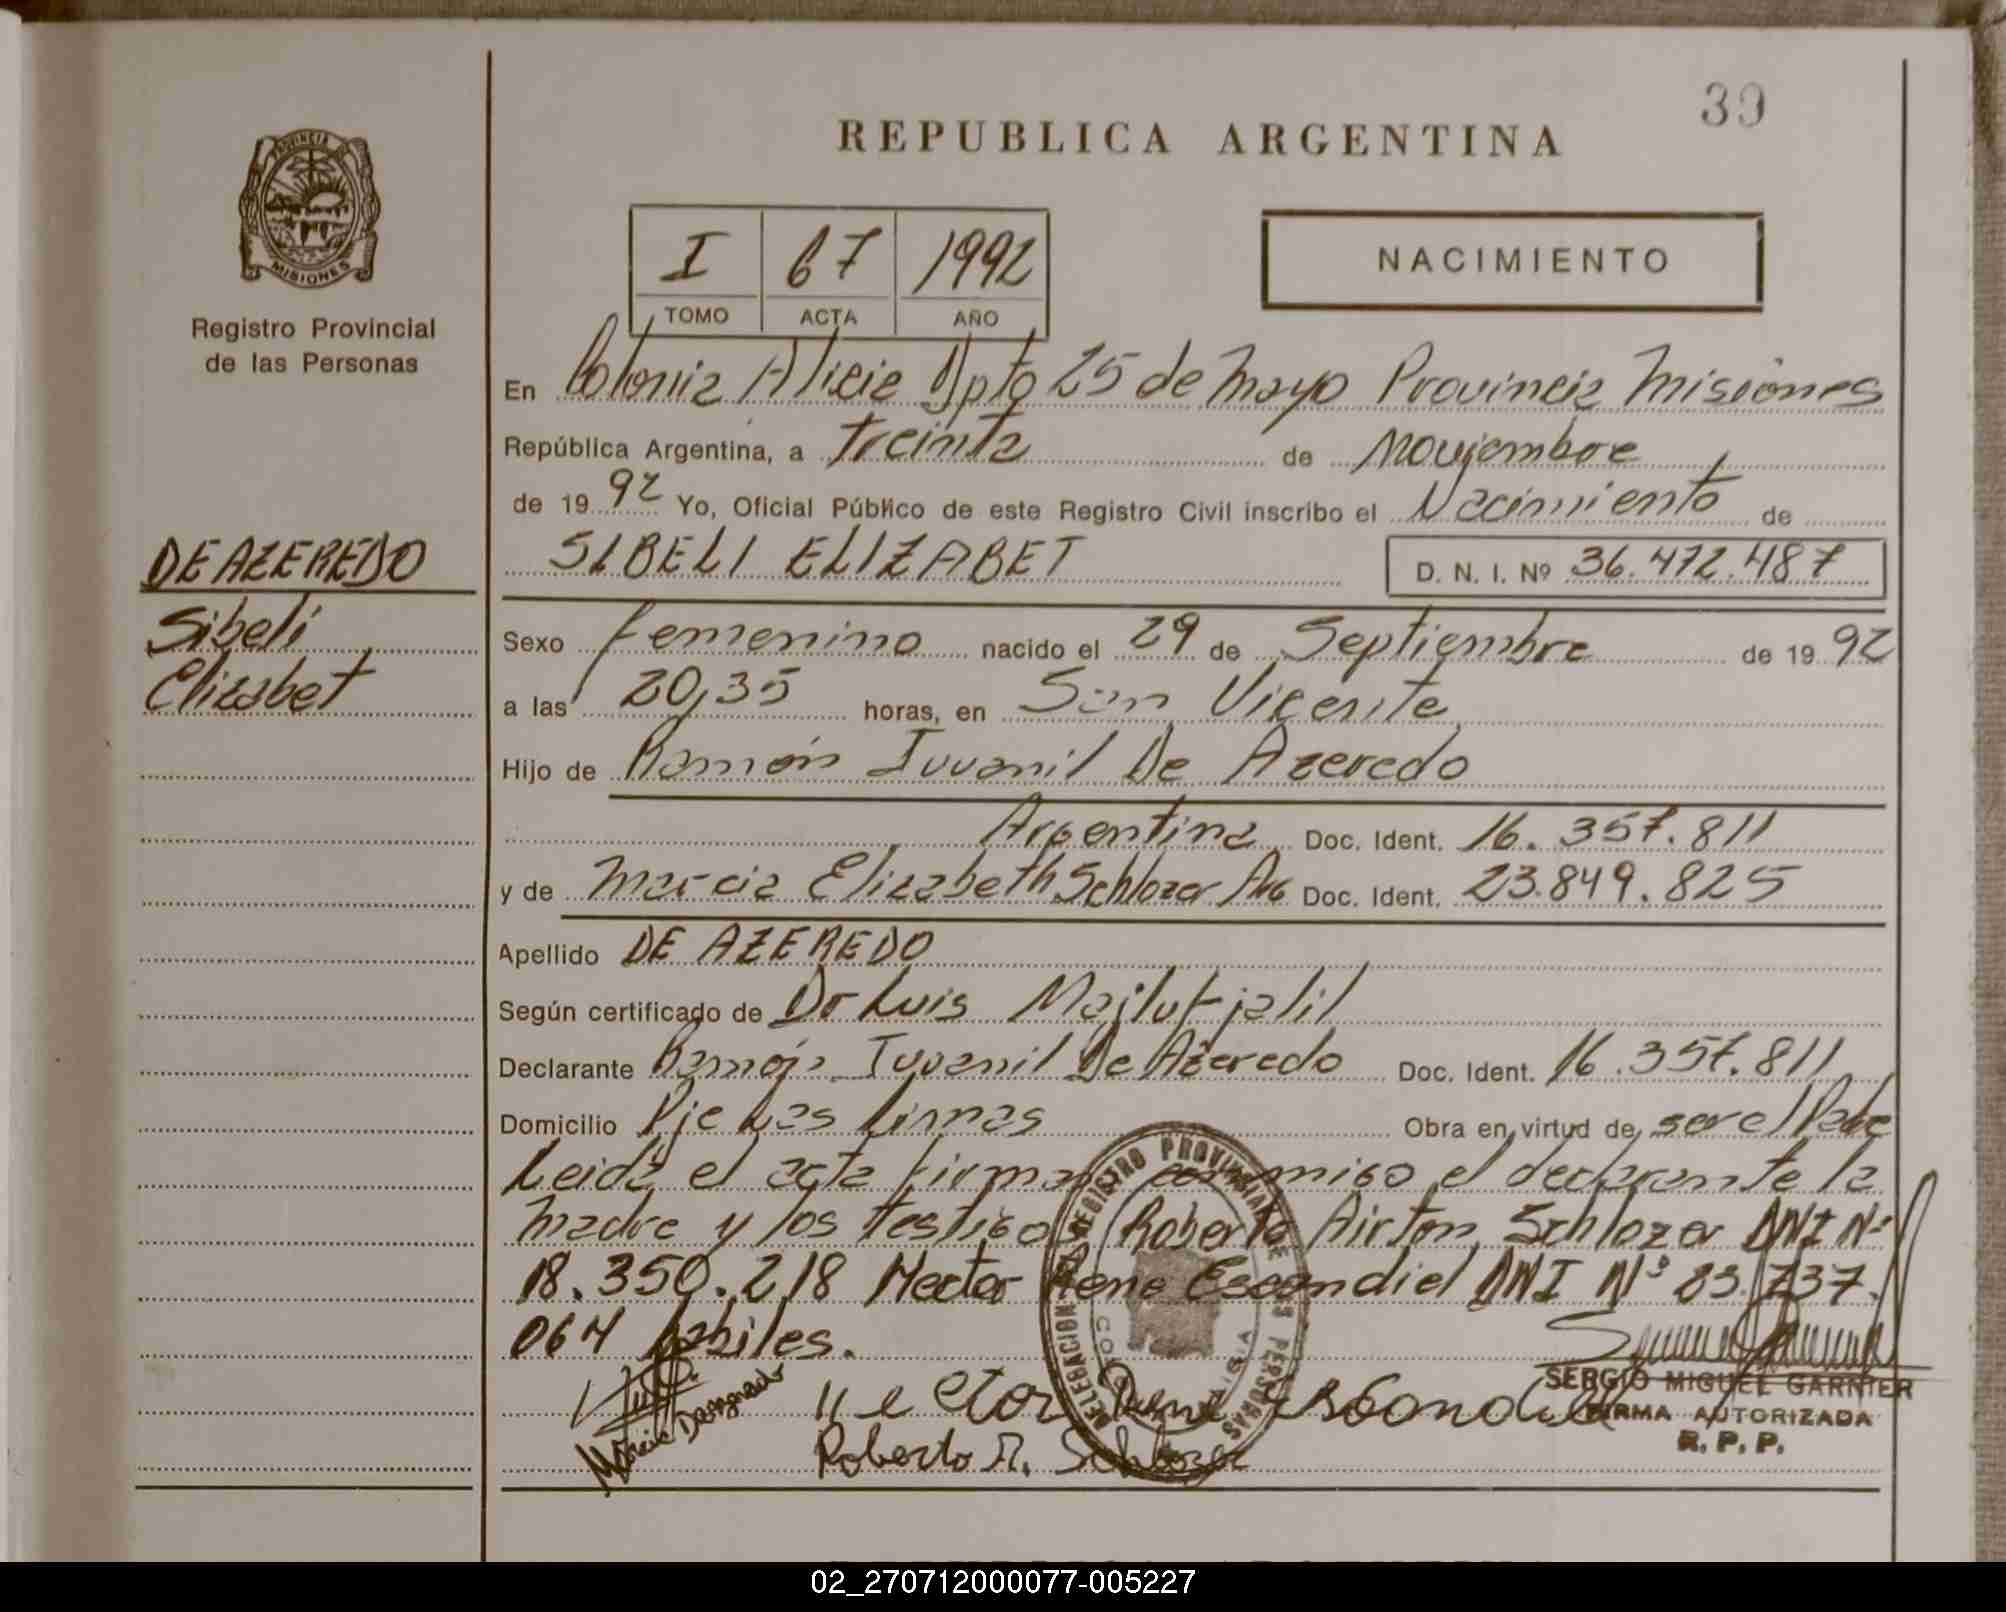 39
REPUBLICA ARGENTINA
PROVINCIA DE
MISIONES
Registro Provincial
de las Personas
I 67 1992
TOMO ACTA AÑO
NACIMIENTO
En Colonia Alicia Dpto 25 de Mayo Provincia Misiones
República Argentina, a treinta de Noviembre
de 19 92 Yo, Oficial Público de este Registro Civil inscribo el Nacimiento de
SIBELI ELIZABET D. N. I. Nº 36.472.487
DE AZEREDO
Sibeli
Elizabet
Sexo femenino nacido el 29 de Septiembre de 19 92
a las 20,35 horas, en San Vicente
Hijo de Ramón Juvenil De Azeredo
Argentina Doc. Ident. 16.357.811
y de Marcia Elizabeth Schlozer Arg Doc. Ident. 23.849.825
Apellido DE AZEREDO
Según certificado de Dr Luis Majlut jalil
Declarante Ramón Juvenil De Azeredo Doc. Ident. 16.357.811
Domicilio Pje Las Limas Obra en virtud de ser el Padre
Leida el acta firman conmigo el declarante la
madre y los testigos Roberto Airton Schlozer DNI Nº
18.350.218 Hector Rene Escandiel DNI Nº 23.737.
064 habiles.
DELEGACION REGISTRO PROVINCIAL DE LAS PERSONAS
Hector Rene
Roberto A. Schlozer
SERGIO MIGUEL GARNIER
FIRMA AUTORIZADA
R. P. P.
02_270712000077-005227